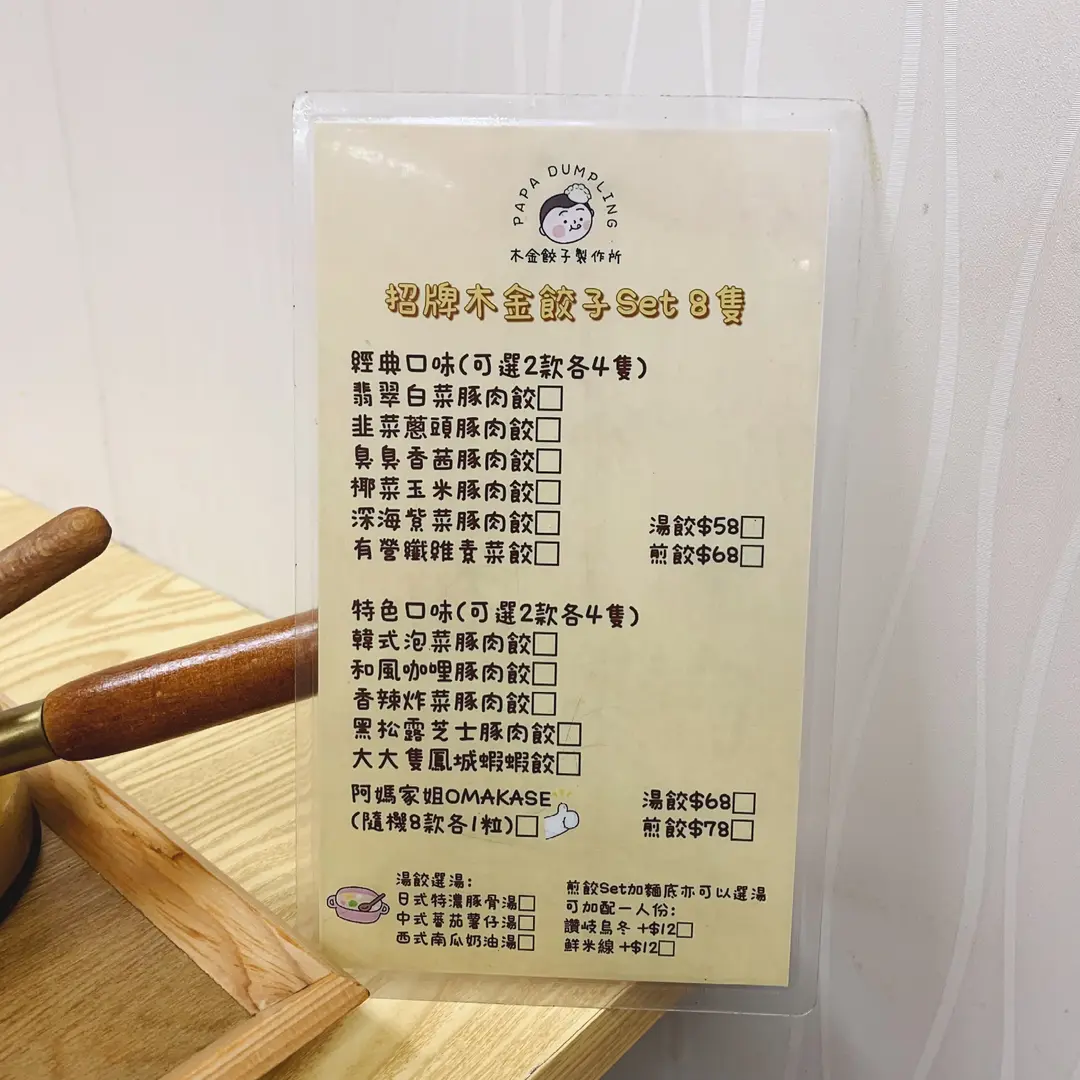 PAPA DUMPLING
木金餃子製作所
招牌木金餃子Set 8隻
經典口味(可選2款各4隻)
翡翠白菜豚肉餃□
韭菜蔥頭豚肉餃□
臭臭香茜豚肉餃□
椰菜玉米豚肉餃□
深海紫菜豚肉餃□
湯餃$58□
有營纖維素菜餃□
煎餃$68□
特色口味(可選2款各4隻)
韓式泡菜豚肉餃□
和風咖哩豚肉餃□
香辣炸菜豚肉餃□
黑松露芝士豚肉餃□
大大隻鳳城蝦蝦餃□
阿媽家姐OMAKASE
湯餃$68□
(隨機8款各1粒)□
煎餃$78□
湯餃選湯:
日式特濃豚骨湯□
中式蕃茄薯仔湯□
西式南瓜奶油湯□
煎餃Set加麵底亦可以選湯
可加配一人份:
讚岐烏冬 +$12□
鮮米線 +$12□